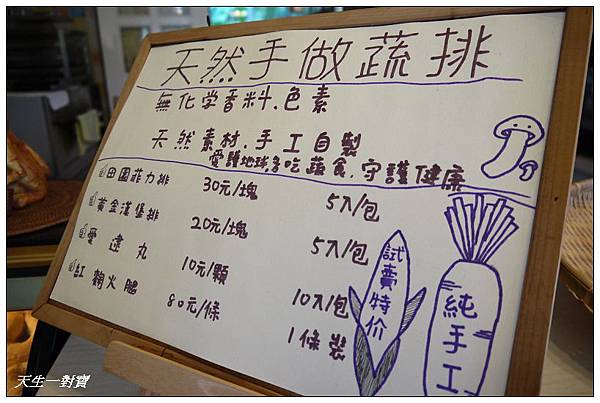 天然手做蔬排
無化学香料.色素
天然素材.手工自製
愛護地球多吃蔬食.守護健康
田園菲力排 30元/塊 5入/包
黃金漢堡排 20元/塊 5入/包
愛達丸 10元/顆 10入/包
紅麴火腿 80元/條 1條裝
試賣特价
純手工
天生一對寶